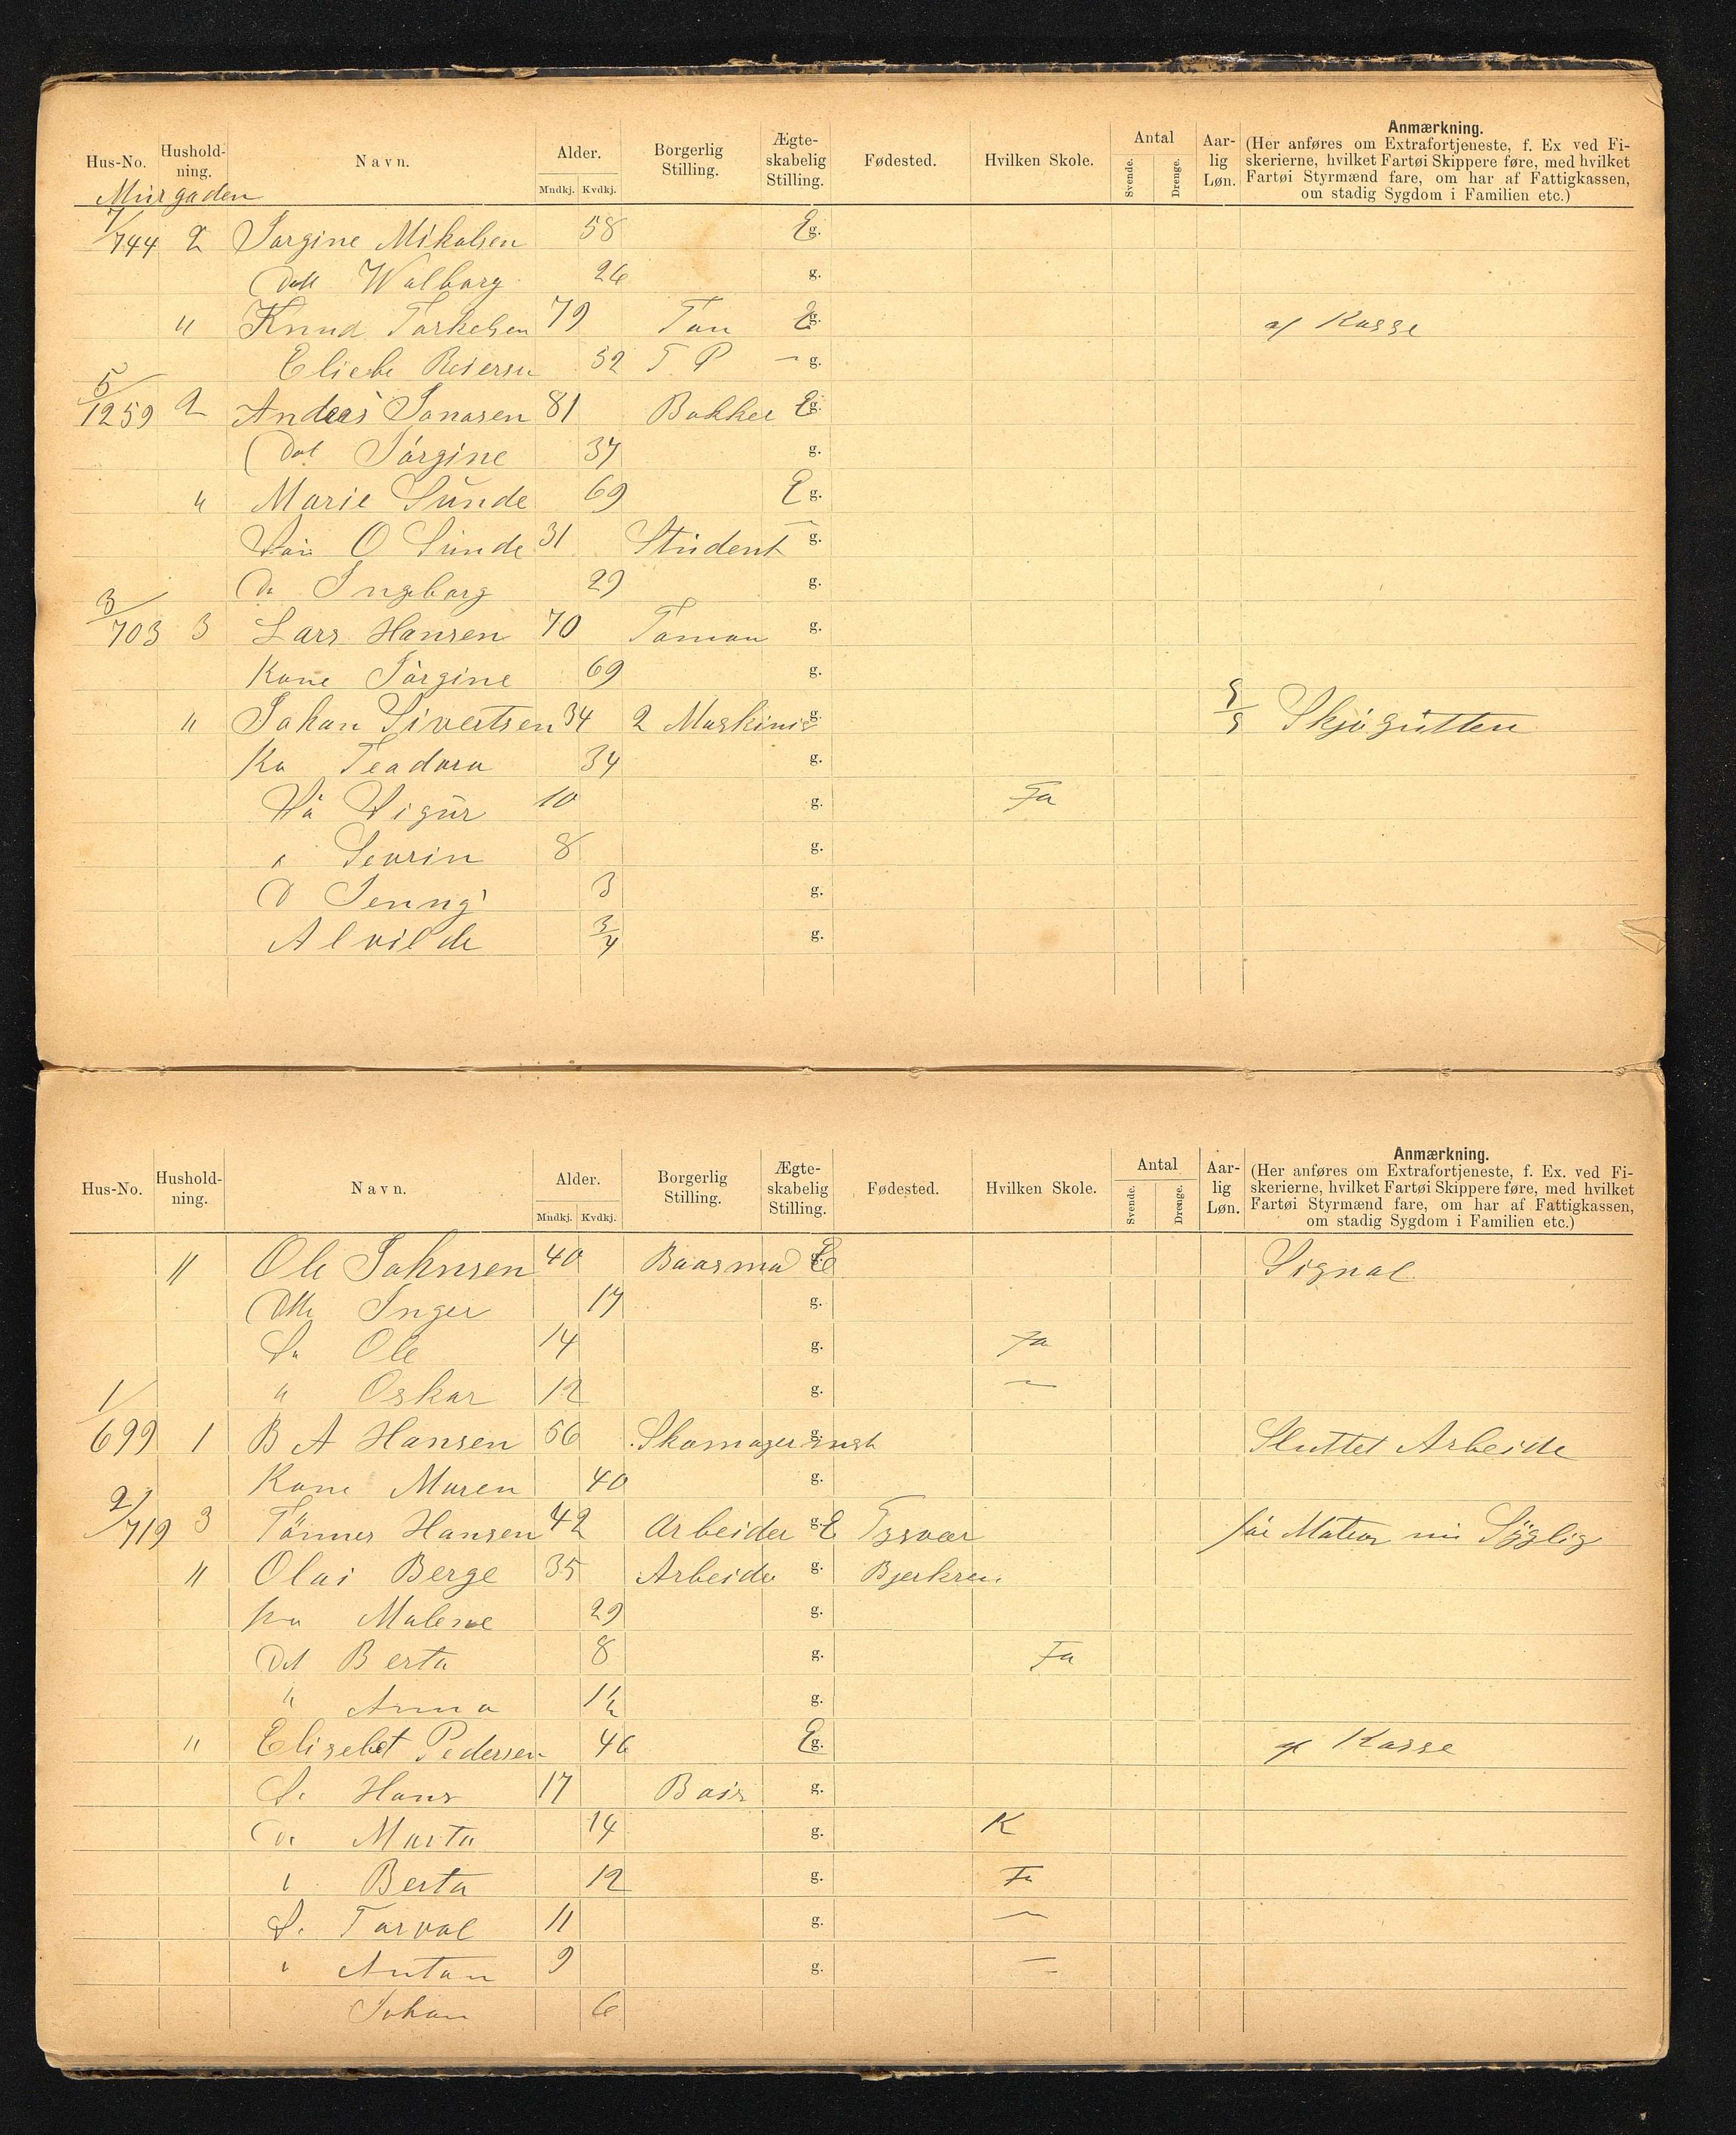 Hus-No. Hushold-ning. Navn. Alder. Mndkj. Kvdkj. Borgerlig Stilling. Ægte-skabelig Stilling. Fødested. Hvilken Skole. Antal Svende. Drenge. Aar-lig Løn. Anmærkning.
(Her anføres om Extrafortjeneste, f. Ex ved Fi-
skerierne, hvilket Fartøi Skippere føre, med hvilket
Fartøi Styrmænd fare, om har af Fattigkassen,
om stadig Sygdom i Familien etc.)
Murgaden
7/744 2 Jorgine Mikalsen 58 E g.
Datt Walborg 26 g.
" Knud Torkelsen 79 E g. af Kasse
Eliebe Reiersen 52 T P — g.
5/1259 2 Andeas Jonasen 81 Bøkker E g.
Dat Jørgine 37 g.
" Marie Sunde 69 E g.
Søn O Sunde 31 Student g.
Da Ingeborg 29 g.
3/703 3 Lars Hansen 70 Toman g.
Kone Jørgine 69 g.
" Johan Sivertsen 34 2 Maskinis g. S/S Skjøgutten
Ko Teadora 34 g.
Sø Sigur 10 g. Fa
" Sevrin 8 g.
D Jenny 3 g.
Alvilde 3/4 g.
Hus-No. Hushold-ning. Navn. Alder. Mndkj. Kvdkj. Borgerlig Stilling. Ægte-skabelig Stilling. Fødested. Hvilken Skole. Antal Svende. Drenge. Aar-lig Løn. Anmærkning.
(Her anføres om Extrafortjeneste, f. Ex. ved Fi-
skerierne, hvilket Fartøi Skippere føre, med hvilket
Fartøi Styrmænd fare, om har af Fattigkassen,
om stadig Sygdom i Familien etc.)
" Ole Johnsen 40 Baasma E g. Signal
Dtt Inger 17 g.
Sø Ole 14 g. Fa
" Oskar 12 g. —
1/699 1 B A Hansen 56 Skomagermst g. Sluttet Arbeide
Kone Maren 40 g.
2/719 3 Tønnes Hansen 42 Arbeider g. E Tysvær
" Olai Berge 35 Arbeider g. Bjerkrem
Ko Malene 29 g.
Dat Berta 8 g. Fa
" Anna 1½ g.
" Elisebet Pedersen 46 E g. af Kasse
S. Hans 17 g.
Da Marta 14 g. K
" Berta 12 g. Fa
S. Torval 11 g. —
" Anton 9 g. —
Johan 6